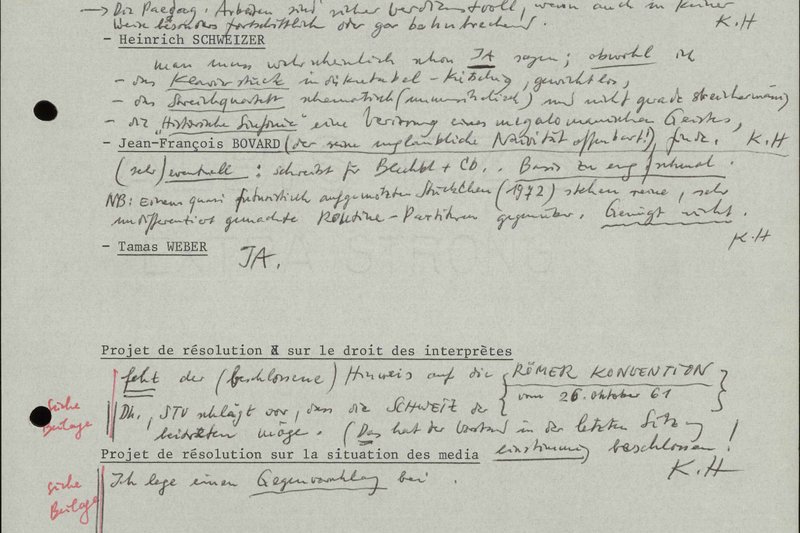 → Die Paedag. Arbeiten sind sicher verdienstvoll, wenn auch in keiner
Weise besonders fortschrittlich oder gar bahnbrechend. K.H
- Heinrich SCHWEIZER
man muss wahrscheinlich schon JA sagen; obwohl ich
- das Klavierstück in kitschig, gewichtlos,
- das Streichquartett schematisch (unmusikalisch) und nicht gerade streichermässig
- die "Historische Sinfonie" eine Verirrung eines megalomanischen Geistes,
- Jean-François BOVARD (der seine unglaubliche Naivität offenbart!) finde. K.H
(sehr) eventuell: schreibt für Blechbl + CD.. Basis zu eng/schmal.
NB: Einem quasi futuristisch aufgemotzten Stückchen (1972) stehen seine, sehr
undifferenziert gemachte Routine-Partituren gegenüber. Genügt nicht.
K.H
- Tamas WEBER
JA.
Projet de résolution sur le droit des interprètes
siehe Beilage
fehlt der (beschlossene) Hinweis auf die {RÖMER KONVENTION
vom 26. Oktober 61}
Dh., STV schlägt vor, dass die SCHWEIZ der
beitreten möge. (Das hat der Vorstand in der letzten Sitzung
einstimmig beschlossen!
Projet de résolution sur la situation des media
K.H
siehe Beilage
Ich lege einen Gegenvorschlag bei.